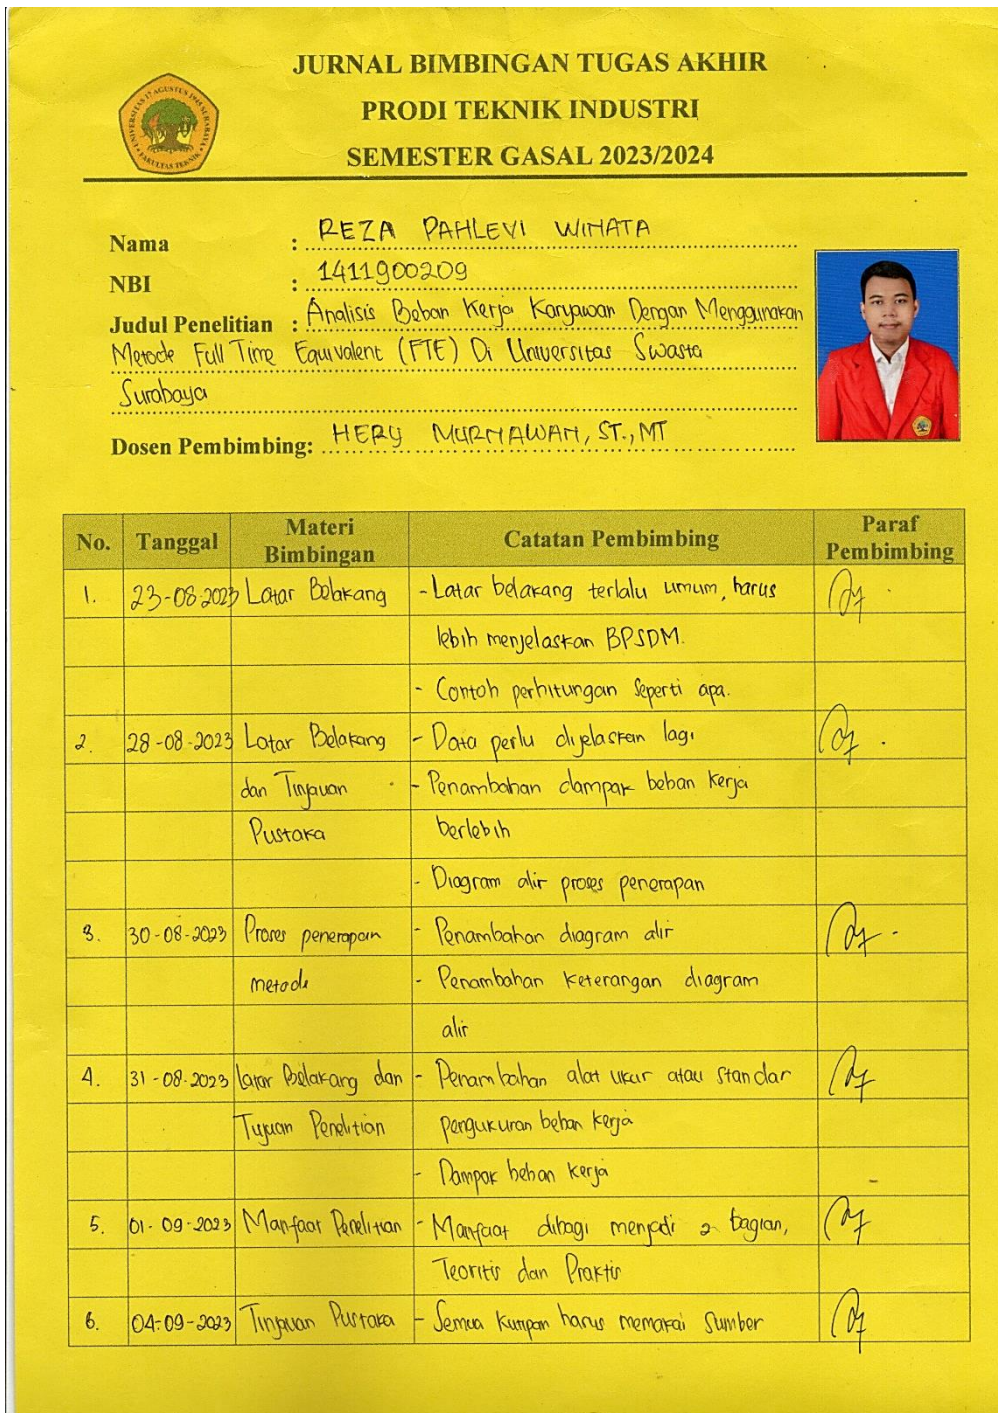 JURNAL BIMBINGAN TUGAS AKHIR
PRODI TEKNIK INDUSTRI
SEMESTER GASAL 2023/2024
UNIVERSITAS 17 AGUSTUS 1945 SURABAYA
FAKULTAS TEKNIK
Nama : REZA PAHLEVI WINATA
NBI : 1411900209
Judul Penelitian : Analisis Beban Kerja Karyawan Dengan Menggunakan
Metode Full Time Equivalent (FTE) Di Universitas Swasta
Surabaya
Dosen Pembimbing: HERY MURNAWAN, ST., MT
No. Tanggal Materi Bimbingan Catatan Pembimbing Paraf Pembimbing
1. 23-08-2023 Latar Belakang - Latar belakang terlalu umum, harus
lebih menjelaskan BPSDM.
- Contoh perhitungan seperti apa.
2. 28-08-2023 Latar Belakang - Data perlu dijelaskan lagi
dan Tinjauan - Penambahan dampak beban kerja
Pustaka berlebih
- Diagram alir proses penerapan
3. 30-08-2023 Proses penerapan - Penambahan diagram alir
metode - Penambahan keterangan diagram
alir
4. 31-08-2023 Latar Belakang dan - Penambahan alat ukur atau standar
Tujuan Penelitian pengukuran beban kerja
- Dampak beban kerja
5. 01-09-2023 Manfaat Penelitian - Manfaat dibagi menjadi 2 bagian,
Teoritis dan Praktis
6. 04-09-2023 Tinjauan Pustaka - Semua kutipan harus memakai sumber